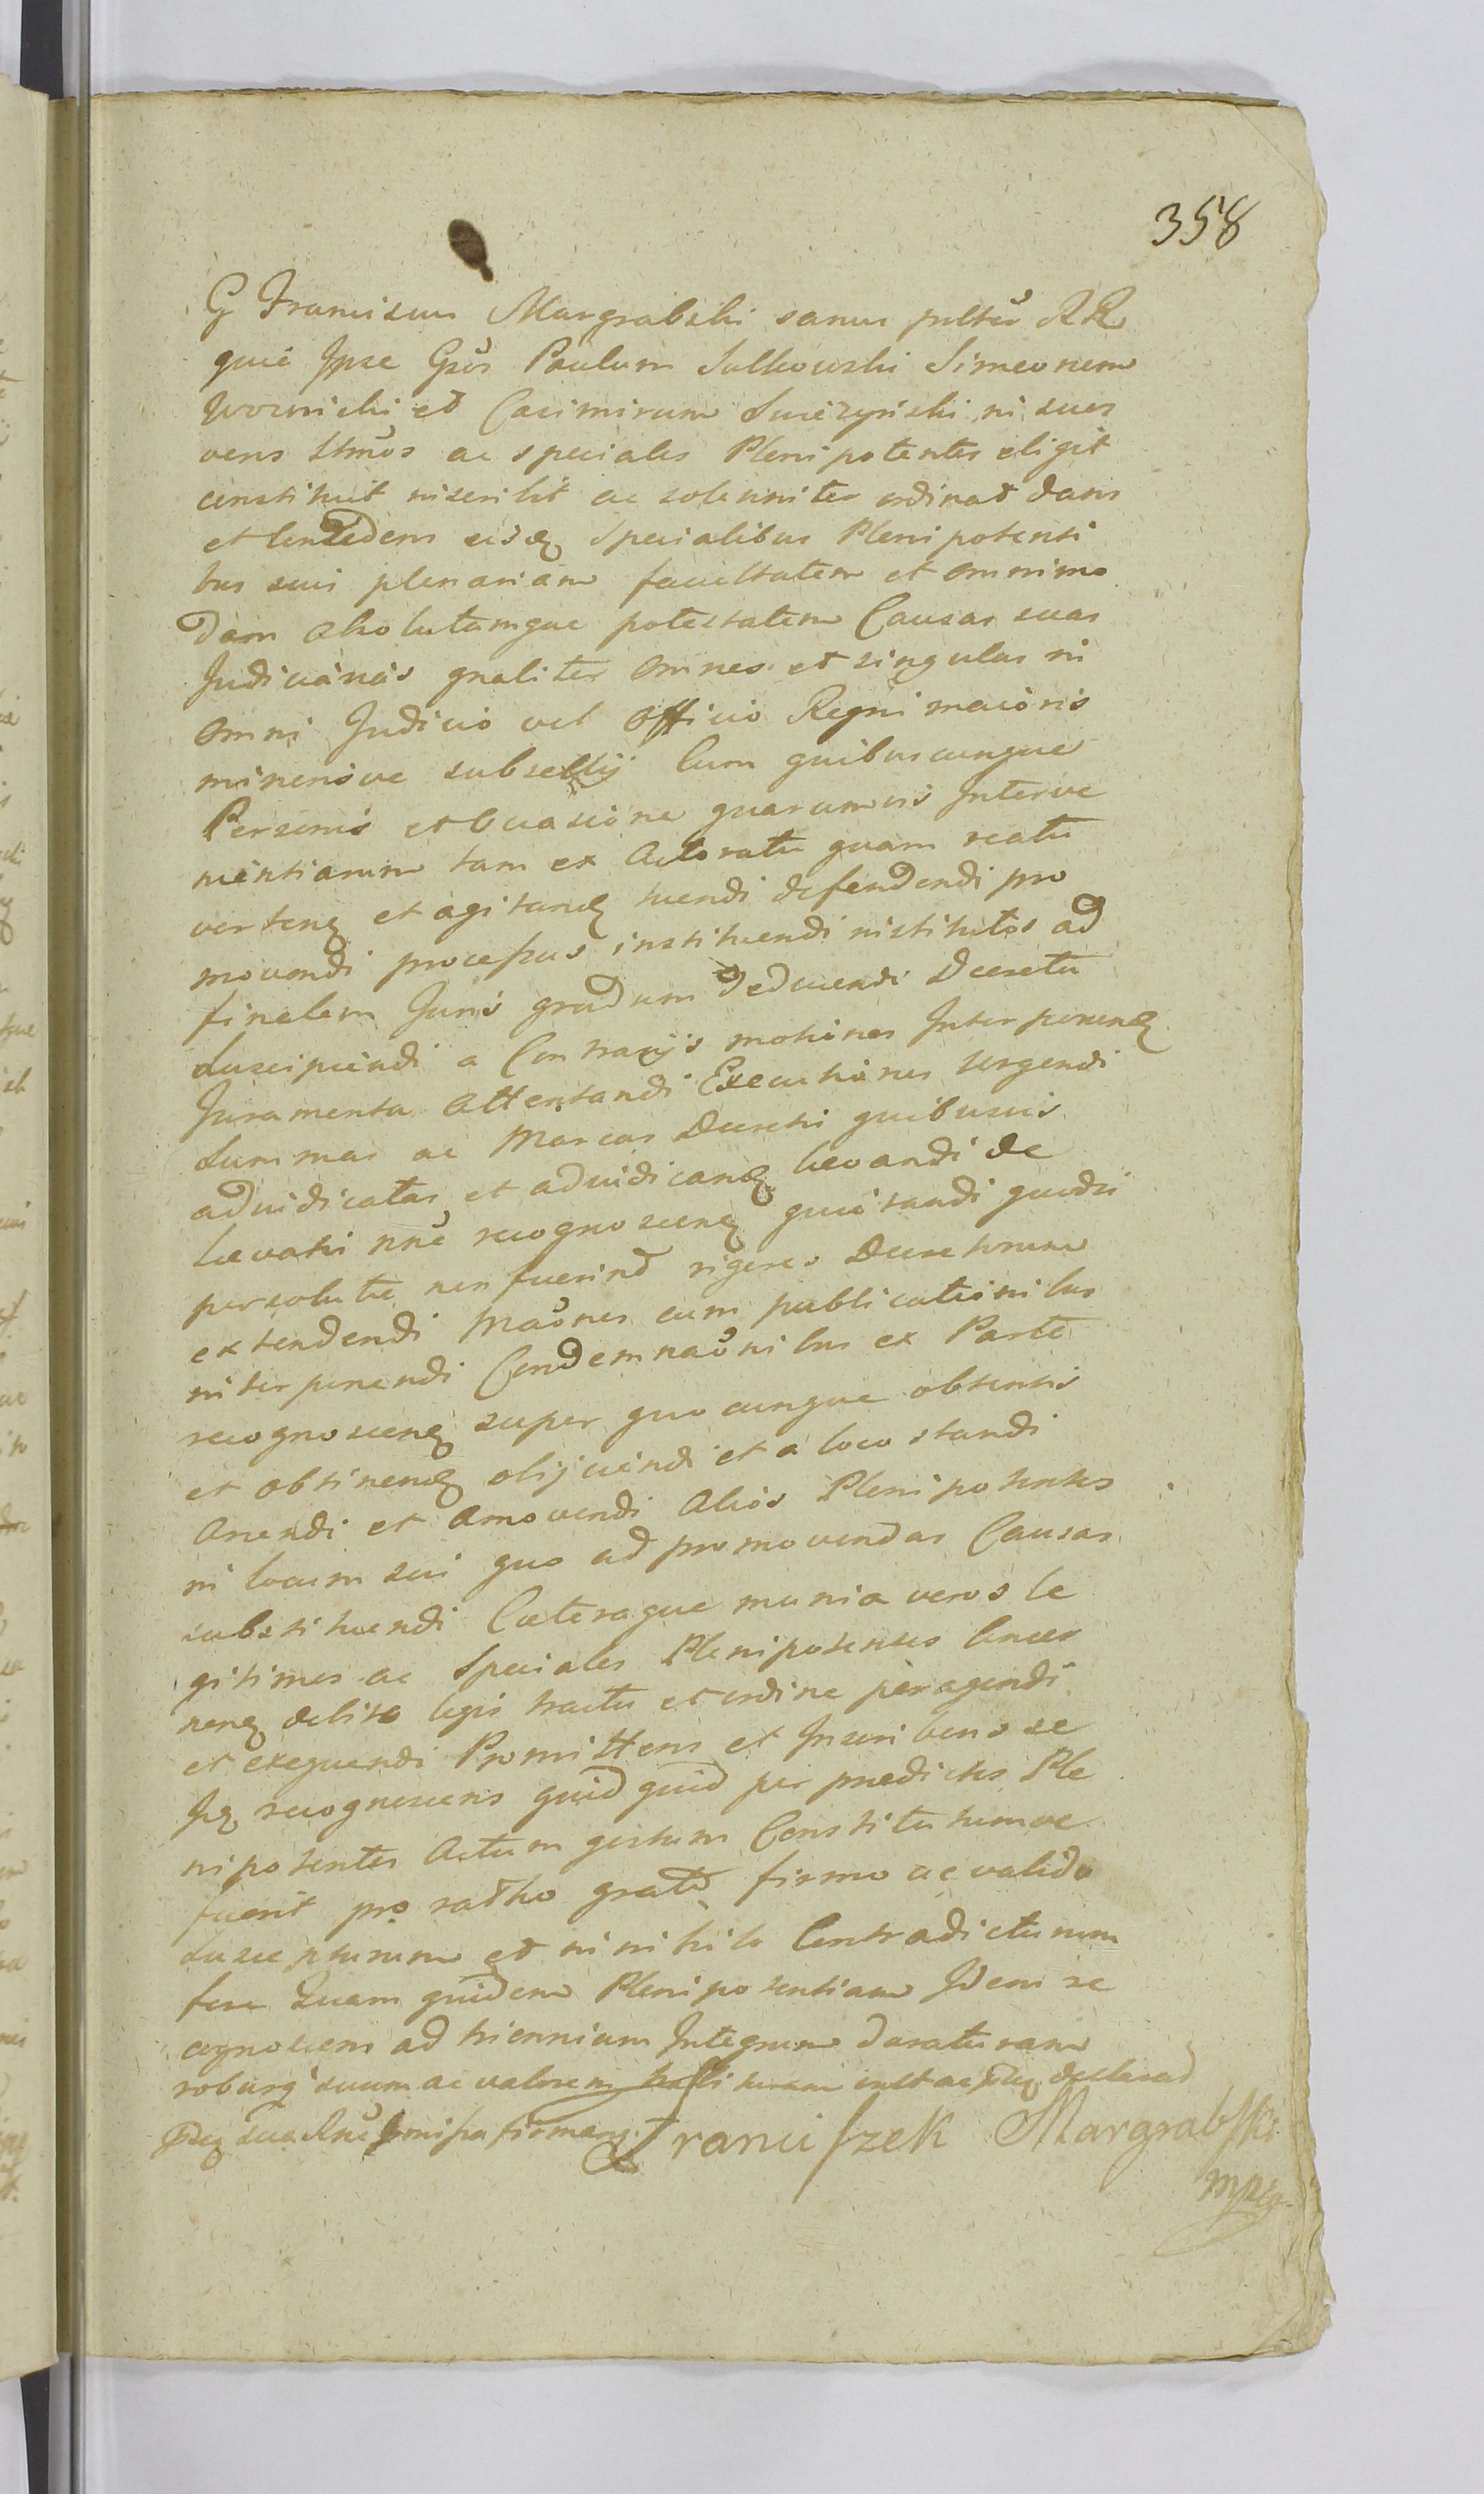 358
G Franciscus Margrabski sanus
quia Ipse Gsos Paulum Sulkowski Simeonem
Woznicki et Casimirum in suos
veros ltmos ac speciales Plenipotentes eligit
constituit inscribit ac solenniter ordinat dans
et Concedens eisdq specialibus Plenipotenti
bus suis plenariam facultatem et omnimo
dam absolutamque potestatem Causas suas
Judiciarias gnaliter omnes et singulas in
omni Judicio vel Officio Regni maioris
minorisve subsellij Cum quibuscunque
Personis et Occasione quarumvis Interve
nientiarum tam ex Actoratu quam reatu
verten et agitand tuendi defendendi pro
movendi processus instituendi institutos ad
finalem Juris gradum deducendi Decreta
Suscipiendi a Contrarijs motiones Interponend
Juramenta Attentandi Executiones Urgendi
Summas ac Marcas Decreti quibusvis
adiudicatas et adiudicand levandi de
levatis nne recognoscen quietandi quodsi
persolutae non fuerind rigores Decretorum
extendendi Maones cum publicationibus
interponendi Condemnaonibus ex Parte
recognoscen super quocunque obtentis
et obtinend obijciendi et a loco standi
Arcendi et Amovendi Alios Plenipotentes
in locum sui quo ad promovendas Causas
substituendi Caeteraque munia veros le
gitimos ac Speciales Plenipotentes Concer
nen debito legis tractu et ordine peragendi
et exequendi Promittens et Inscribens se
recognoscens quidquid per praedictos Ple
nipotentes Actum gestum Constitutumve
fuerit pro ratho grato firmo ac valido
Suscepturum et in nihilo Contradicturum
fore Quam quidem Plenipotentiam Idem re
cognoscens ad triennium Integrum duraturam
roburq suum ac valorem declarad
Franciszek Margrabski
mpp